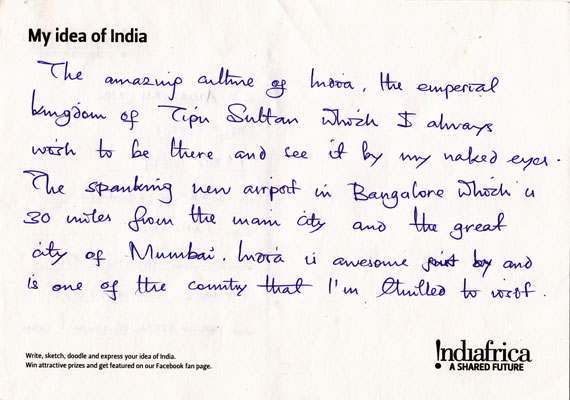 My idea of India
The amazing culture of India, the emperial
kingdom of Tipu Sultan which I always
wish to be there and see it by my naked eyes.
The spanking new airport in Bangalore which is
30 miles from the main city and the great
city of Mumbai. India is awesome just by and
is one of the country that I'm thrilled to visit.
Write, sketch, doodle and express your idea of India.
Win attractive prizes and get featured on our Facebook fan page.
Indiafrica
A SHARED FUTURE